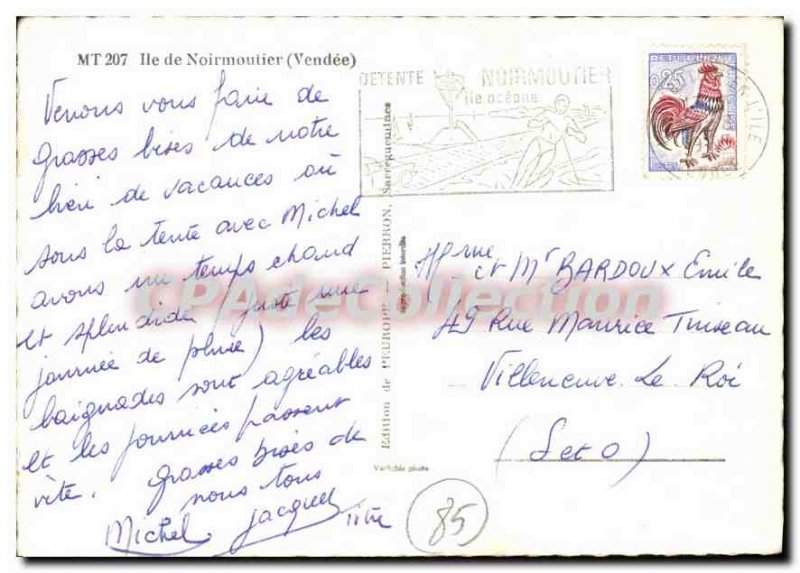 MT 207 Ile de Noirmoutier (Vendée)
Venons vous faire de
grasses bises de notre
lieu de vacances où
sous la tente avec Michel
avons un temps chaud
et splendide (juste une
journée de pluie) les
baignades sont agréables
et les journées passent
vite. Grasses bises de
nous tous
Michel Jacques Titte
DETENTE NOIRMOUTIER
île océane
0,25
L'ILE
Edition de l'EUROPE - PIERRON, Sarreguemines
Reproduction interdite
Véritable photo
Mme et Mr BARDOUX Emile
49 Rue Maurice
Villeneuve Le Roi
(S et O)
85
CPAdeCollection